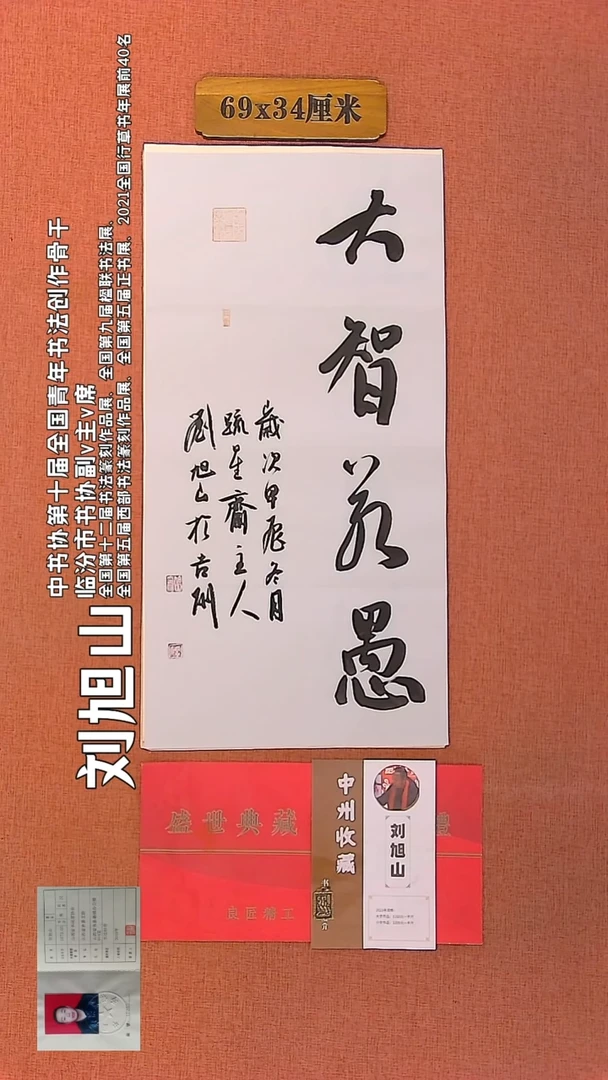 69x34厘米
大智若愚
歲次甲辰冬月
疏星齋主人
劉旭山於吉州
刘旭山
中书协第十届全国青年书法创作骨干
临汾市书协副v主v席
全国第十二届书法篆刻作品展、全国第九届楹联书法展、
全国第五届西部书法篆刻作品展、全国第五届正书展、2021全国行草书年展前40名
盛世典藏
禮
良匠精工
中州收藏
刘旭山